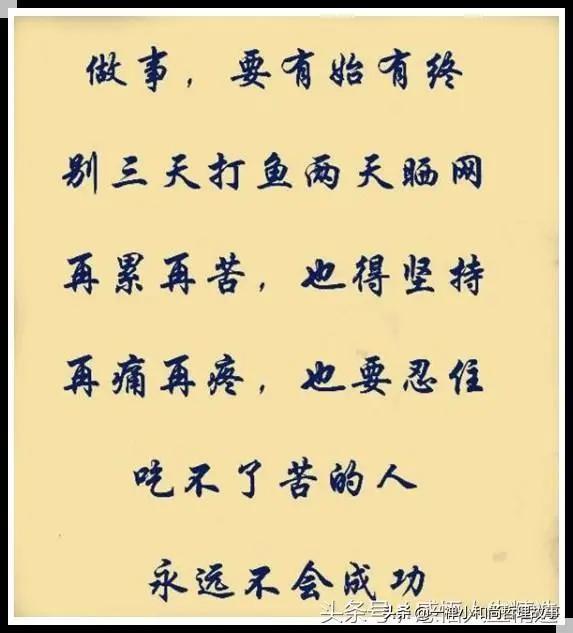 做事，要有始有终
别三天打鱼两天晒网
再累再苦，也得坚持
再痛再疼，也要忍住
吃不了苦的人
永远不会成功
头条 @一禅小和尚哲理故事